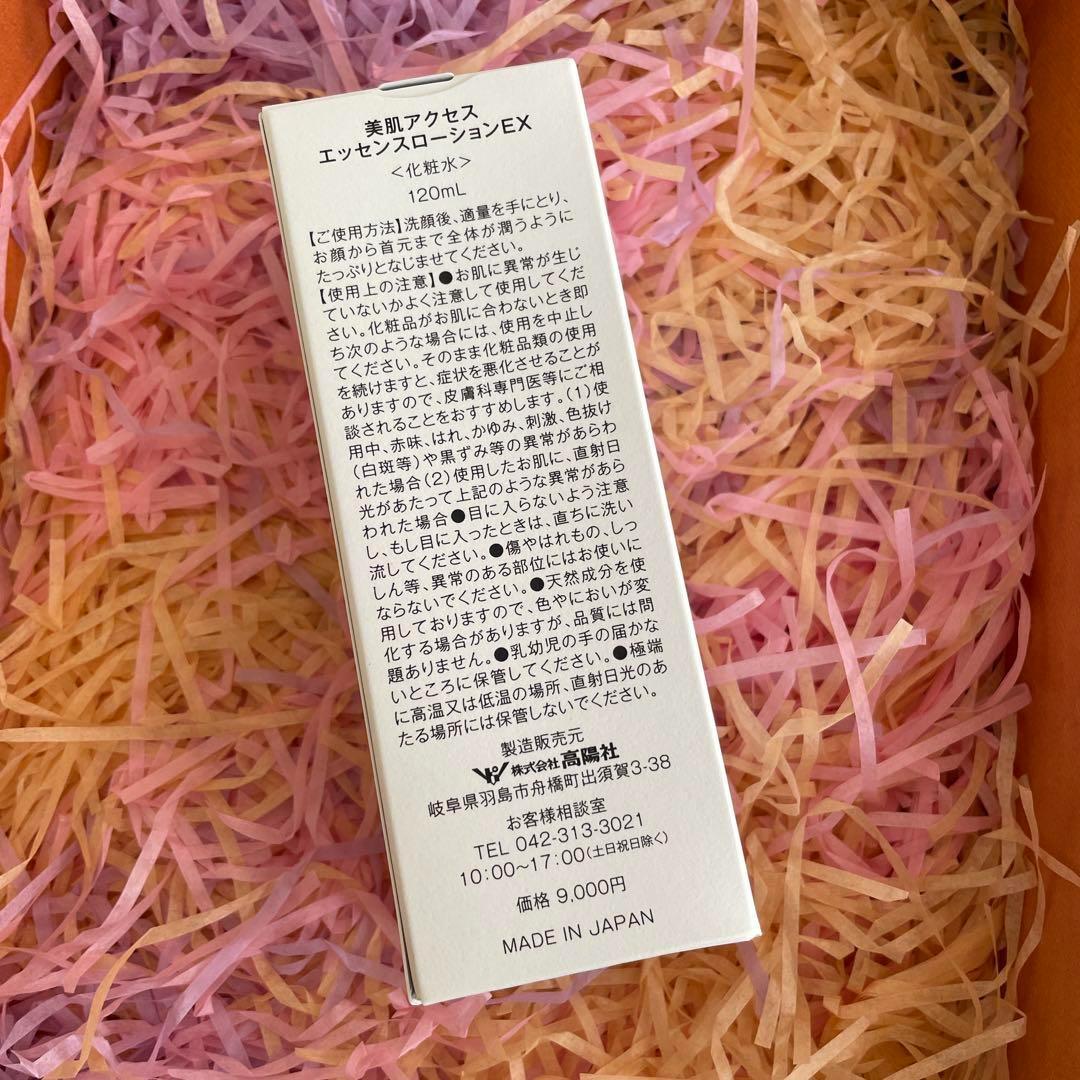 美肌アクセス
エッセンスローションEX
＜化粧水＞
120mL
【ご使用方法】洗顔後、適量を手にとり、
お顔から首元まで全体が潤うように
たっぷりとなじませてください。
【使用上の注意】●お肌に異常が生じ
ていないかよく注意して使用してくだ
さい。化粧品がお肌に合わないとき即
ち次のような場合には、使用を中止し
てください。そのまま化粧品類の使用
を続けますと、症状を悪化させることが
ありますので、皮膚科専門医等にご相
談されることをおすすめします。（1）使
用中、赤味、はれ、かゆみ、刺激、色抜け
（白斑等）や黒ずみ等の異常があらわ
れた場合（2）使用したお肌に、直射日
光があたって上記のような異常があら
われた場合●目に入らないよう注意
し、もし目に入ったときは、直ちに洗い
流してください。●傷やはれもの、しっ
しん等、異常のある部位にはお使いに
ならないでください。●天然成分を使
用しておりますので、色やにおいが変
化する場合がありますが、品質には問
題ありません。●乳幼児の手の届かな
いところに保管してください。●極端
に高温又は低温の場所、直射日光のあ
たる場所には保管しないでください。
製造販売元
株式会社高陽社
岐阜県羽島市舟橋町出須賀3-38
お客様相談室
TEL 042-313-3021
10:00~17:00（土日祝日除く）
価格 9,000円
MADE IN JAPAN